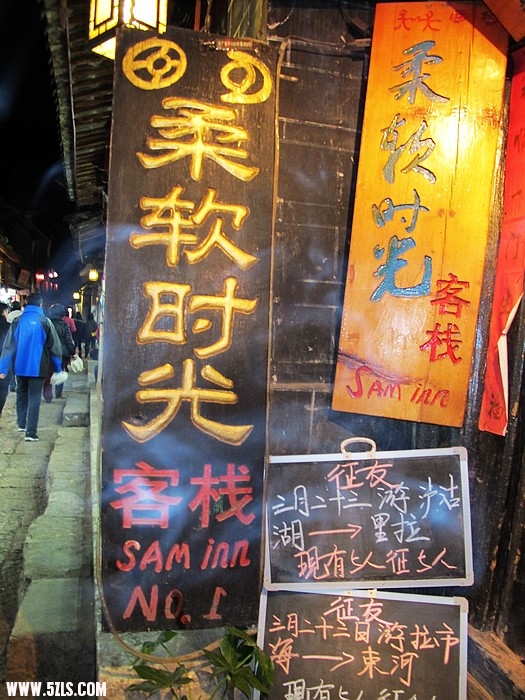 柔软时光
客栈
SAM inn
NO.1
柔软时光
客栈
SAM inn
征友
三月二十二 游 泸沽
湖 → 里拉
现有5人 征5人
征友
三月二十二日游拉市
海 → 束河
现有5人
WWW.5ZLS.COM